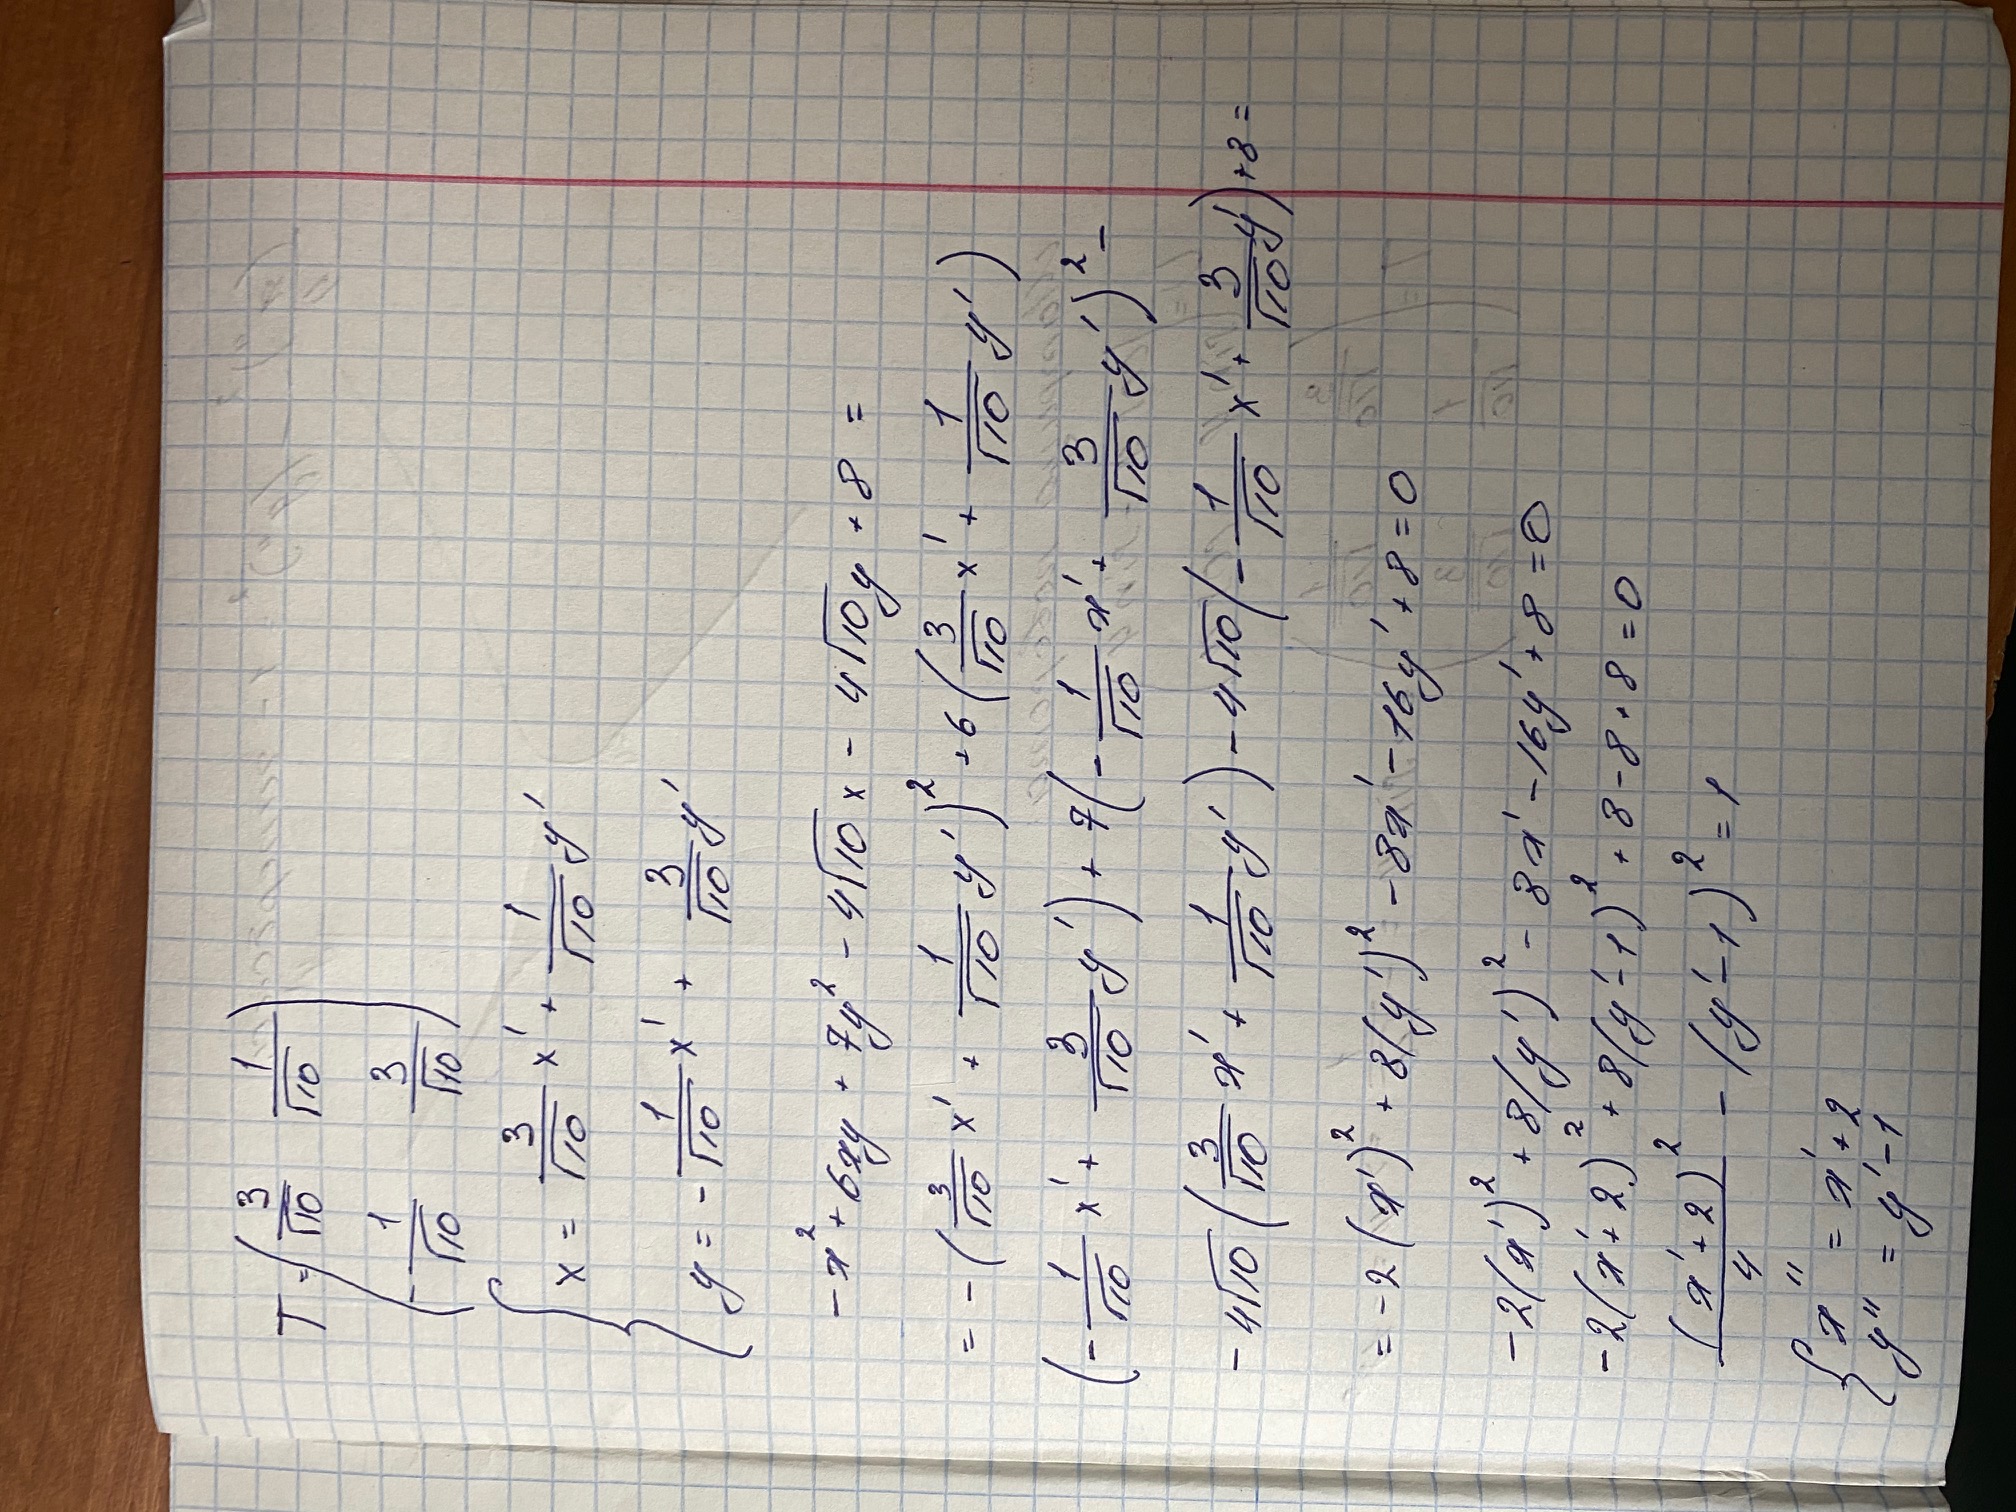 T = ( 3/√10 1/√10
-1/√10 3/√10 )
{ x = 3/√10 x' + 1/√10 y'
y = - 1/√10 x' + 3/√10 y'
-x² + 6xy + 7y² - 4√10 x - 4√10 y + 8 =
= - (3/√10 x' + 1/√10 y')² + 6 (3/√10 x' + 1/√10 y')
(- 1/√10 x' + 3/√10 y') + 7(- 1/√10 x' + 3/√10 y')² -
- 4√10 (3/√10 x' + 1/√10 y') - 4√10 (- 1/√10 x' + 3/√10 y') + 8 =
= -2 (x')² + 8(y')² - 8x' - 16y' + 8 = 0
-2(x')² + 8(y')² - 8x' - 16y' + 8 = 0
-2(x'+2)² + 8(y'-1)² + 8 - 8 + 8 = 0
(x'+2)²/4 - (y'-1)² = 1
{ x'' = x' + 2
y'' = y' - 1